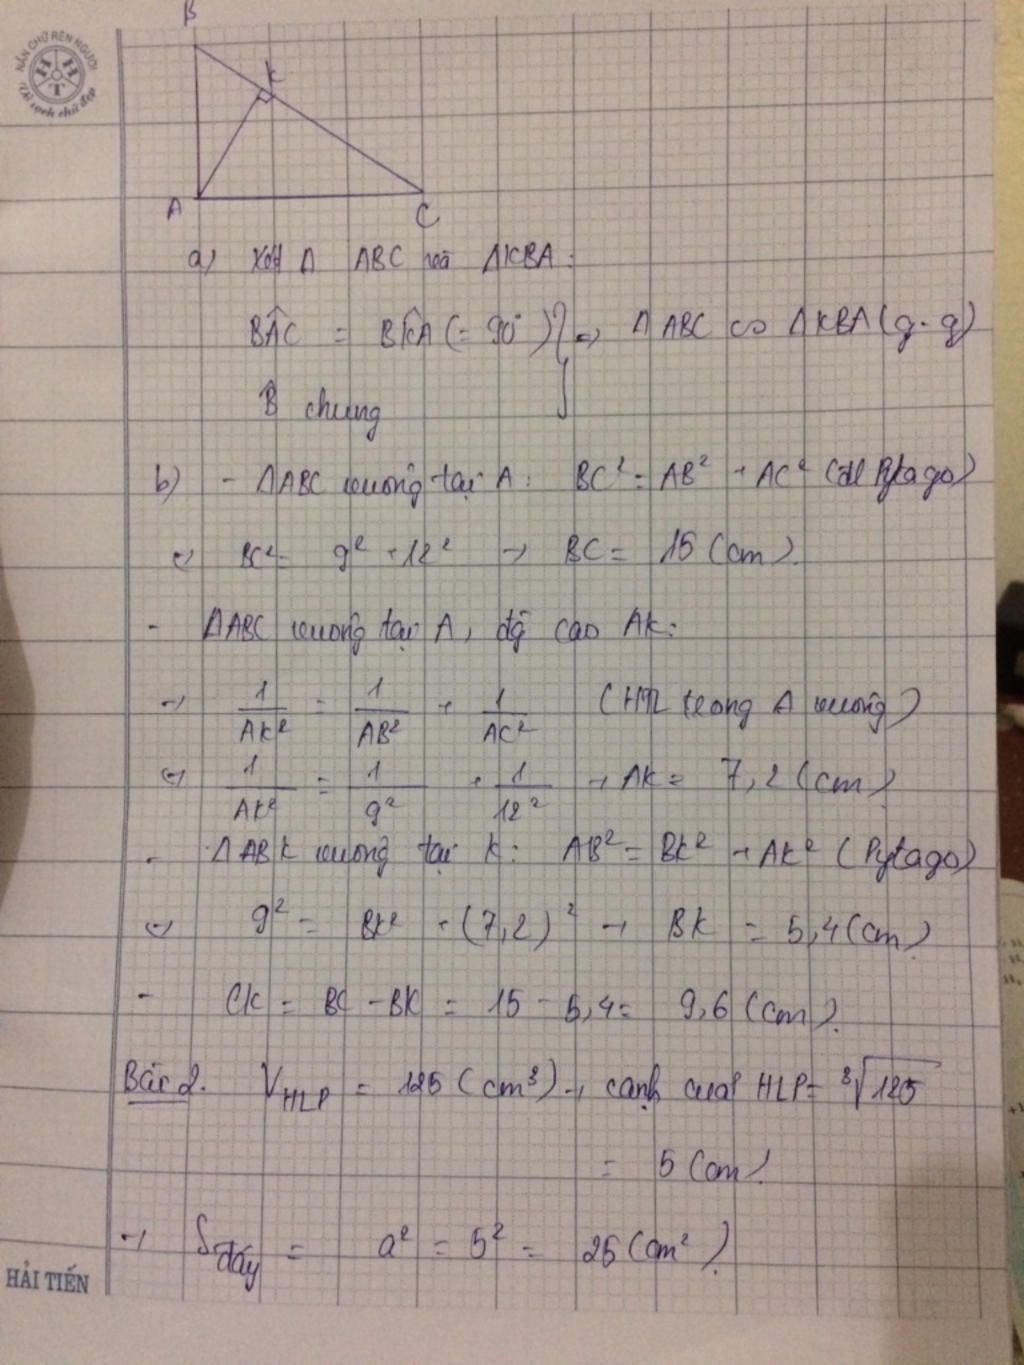 NẮN CHỮ RÈN NGƯỜI
H H T
Vở sạch chữ đẹp
B
K
A
C
a) Xét Δ ABC và ΔKBA:
BÂC = BK̂A (= 90°) } => Δ ABC ∽ ΔKBA (g.g)
B̂ chung
b) - ΔABC vuông tại A: BC² = AB² + AC² (đl Pytago)
<=> BC² = 9² + 12² → BC = 15 (cm).
- ΔABC vuông tại A, đg cao AK:
→ 1/AK² = 1/AB² + 1/AC² (HTL trong Δ vuông)
<=> 1/AK² = 1/9² + 1/12² → AK = 7,2 (cm)
- ΔABK vuông tại K: AB² = BK² + AK² (Pytago)
<=> 9² = BK² + (7,2)² → BK = 5,4 (cm)
- CK = BC - BK = 15 - 5,4 = 9,6 (cm).
Bài 2. V HLP = 125 (cm³) → cạnh của HLP = ³√125
= 5 (cm)
→ S đáy = a² = 5² = 25 (cm²).
HẢI TIẾN